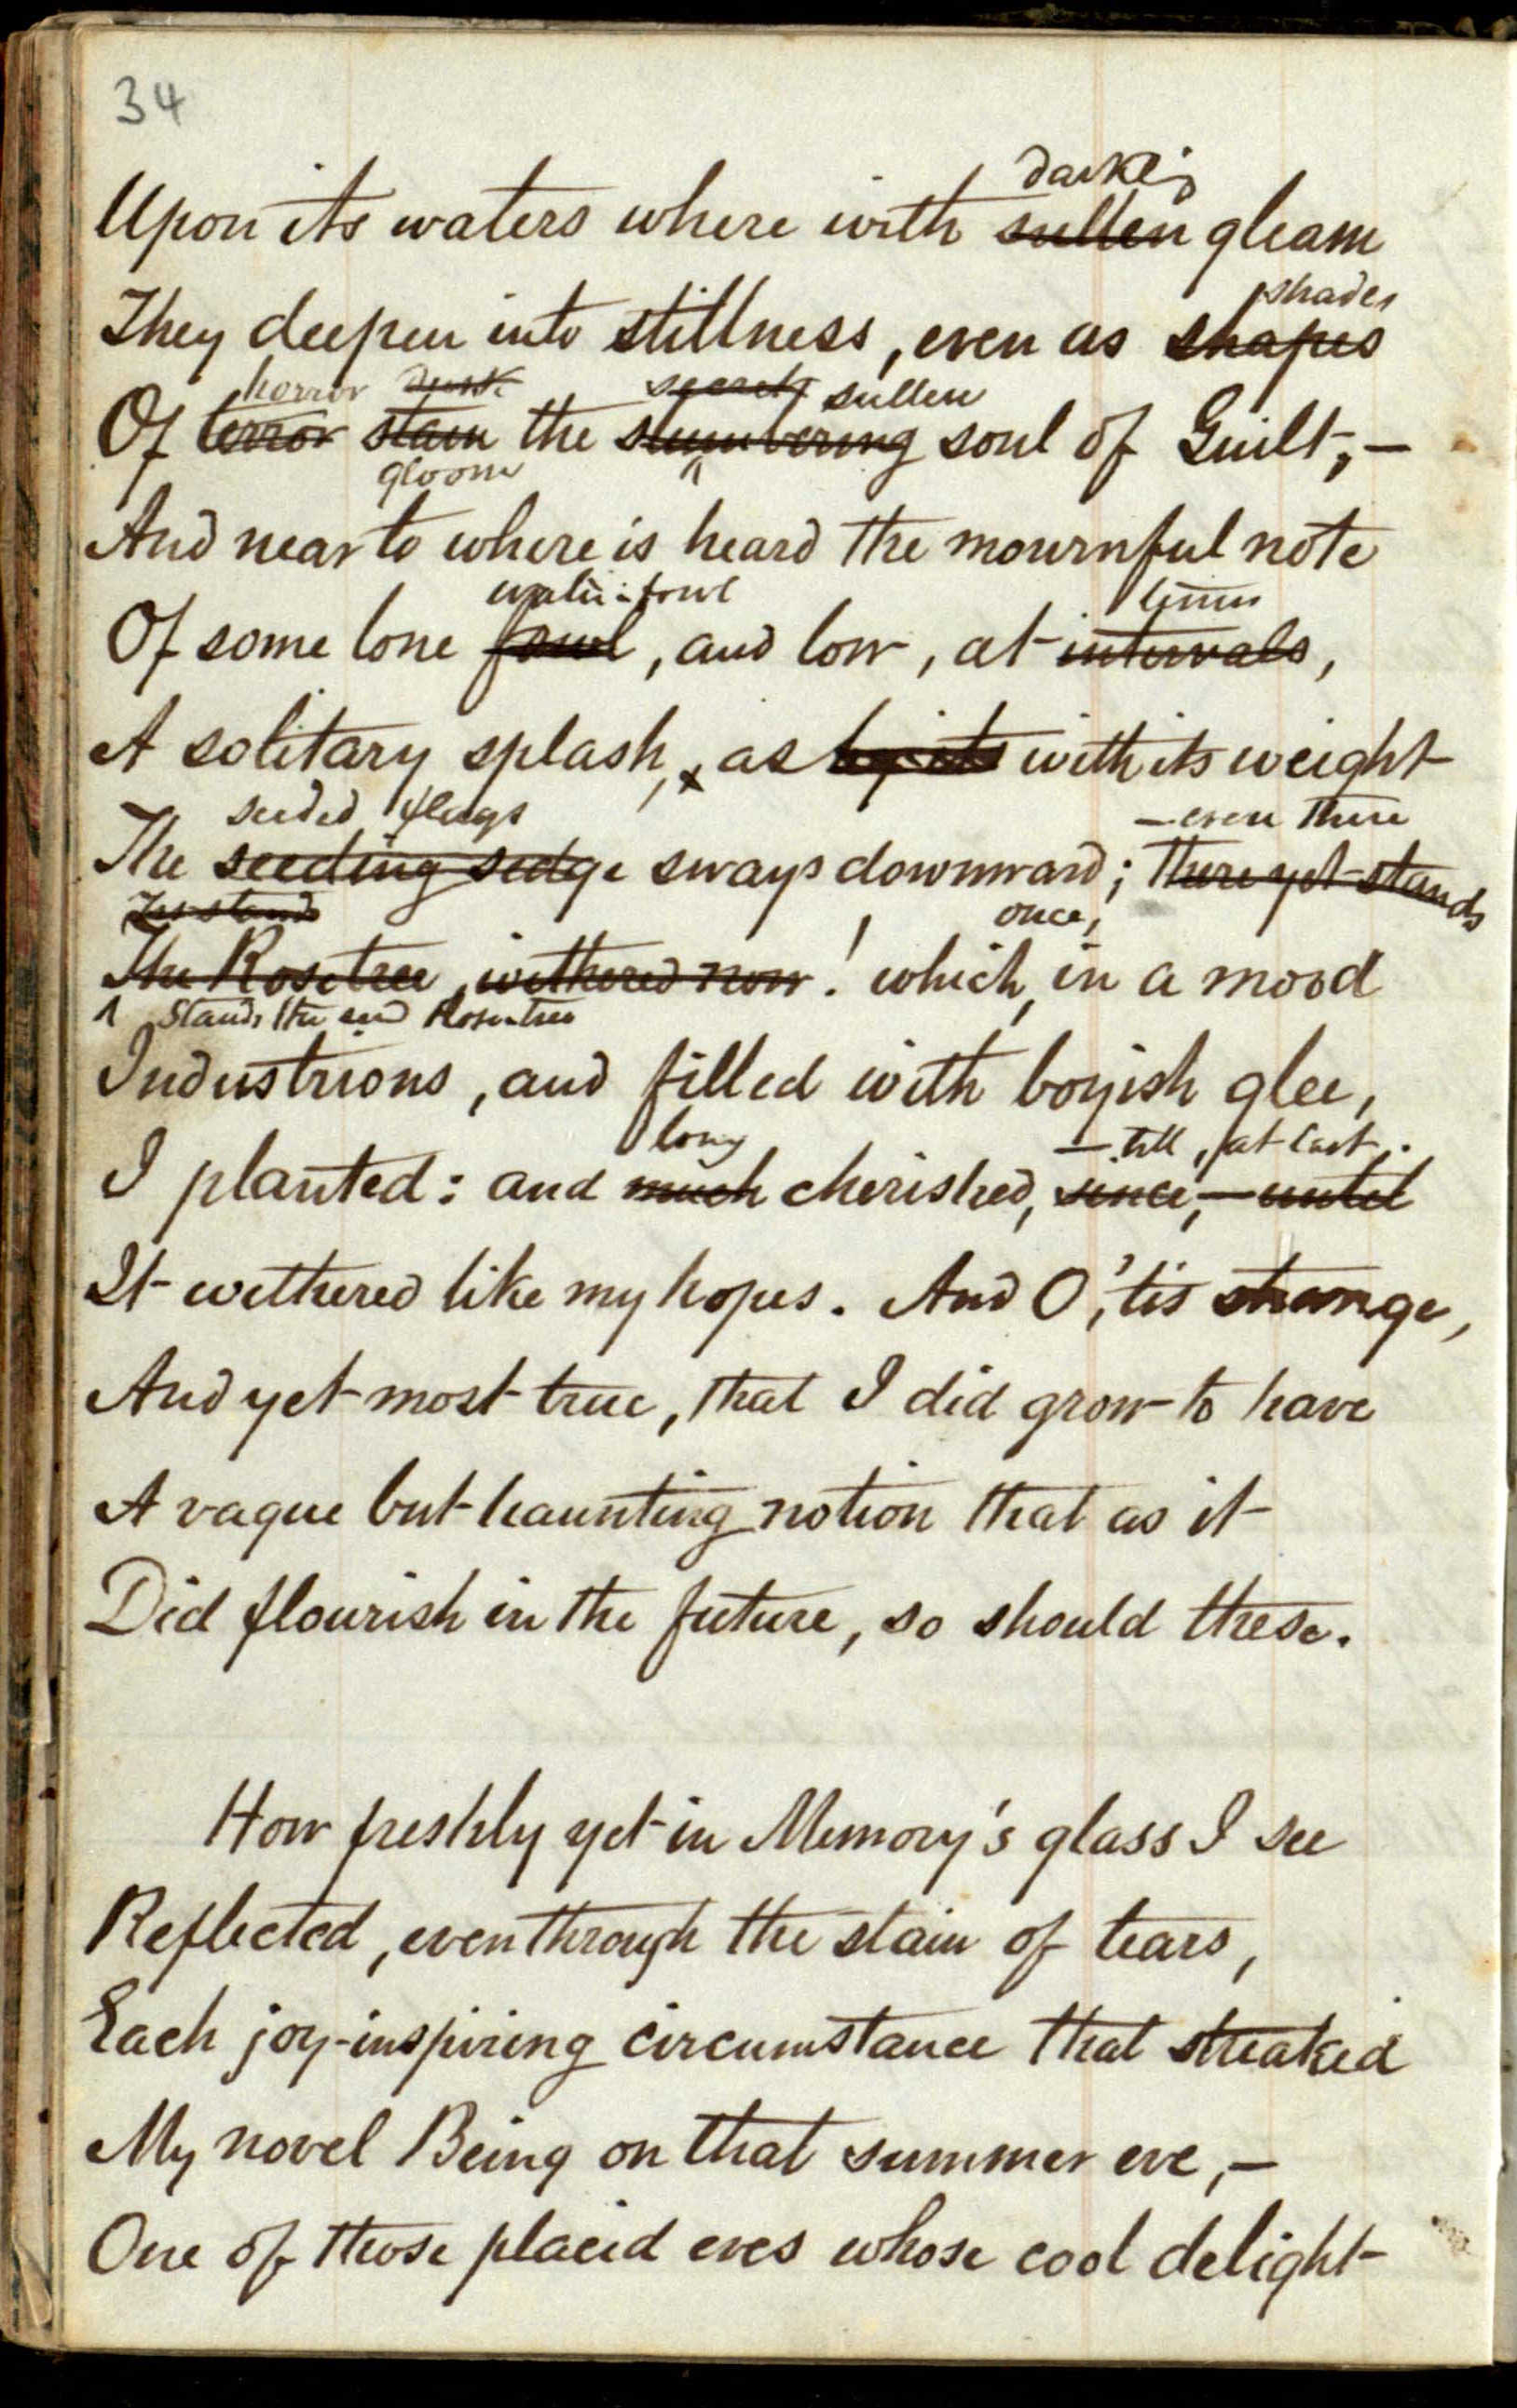 34
darkling
Upon its waters where with sullen gleam
shades
They deepen into stillness, even as shapes
horror dusk secret sullen
Of terror stain the slumbering soul of Guilt;—
gloom
And near to where is heard the mournful note
water-fowl times
Of some lone fowl, and low, at intervals,
A solitary splash, as by its with its weight
seeded flags —even there
The seeding sedge sways downward; there yet stands
once,
The Rosetree, withered now! which, in a mood
Stands the Rosetree
Industrious, and filled with boyish glee,
long —till, at last,
I planted: and much cherished, since,—until
It withered like my hopes. And O, 'tis strange,
And yet most true, that I did grow to have
A vague but haunting notion that as it
Did flourish in the future, so should these.
How freshly yet in Memory's glass I see
Reflected, even through the stain of tears,
Each joy-inspiring circumstance that streaked
My novel Being on that summer eve,—
One of those placid eves whose cool delight